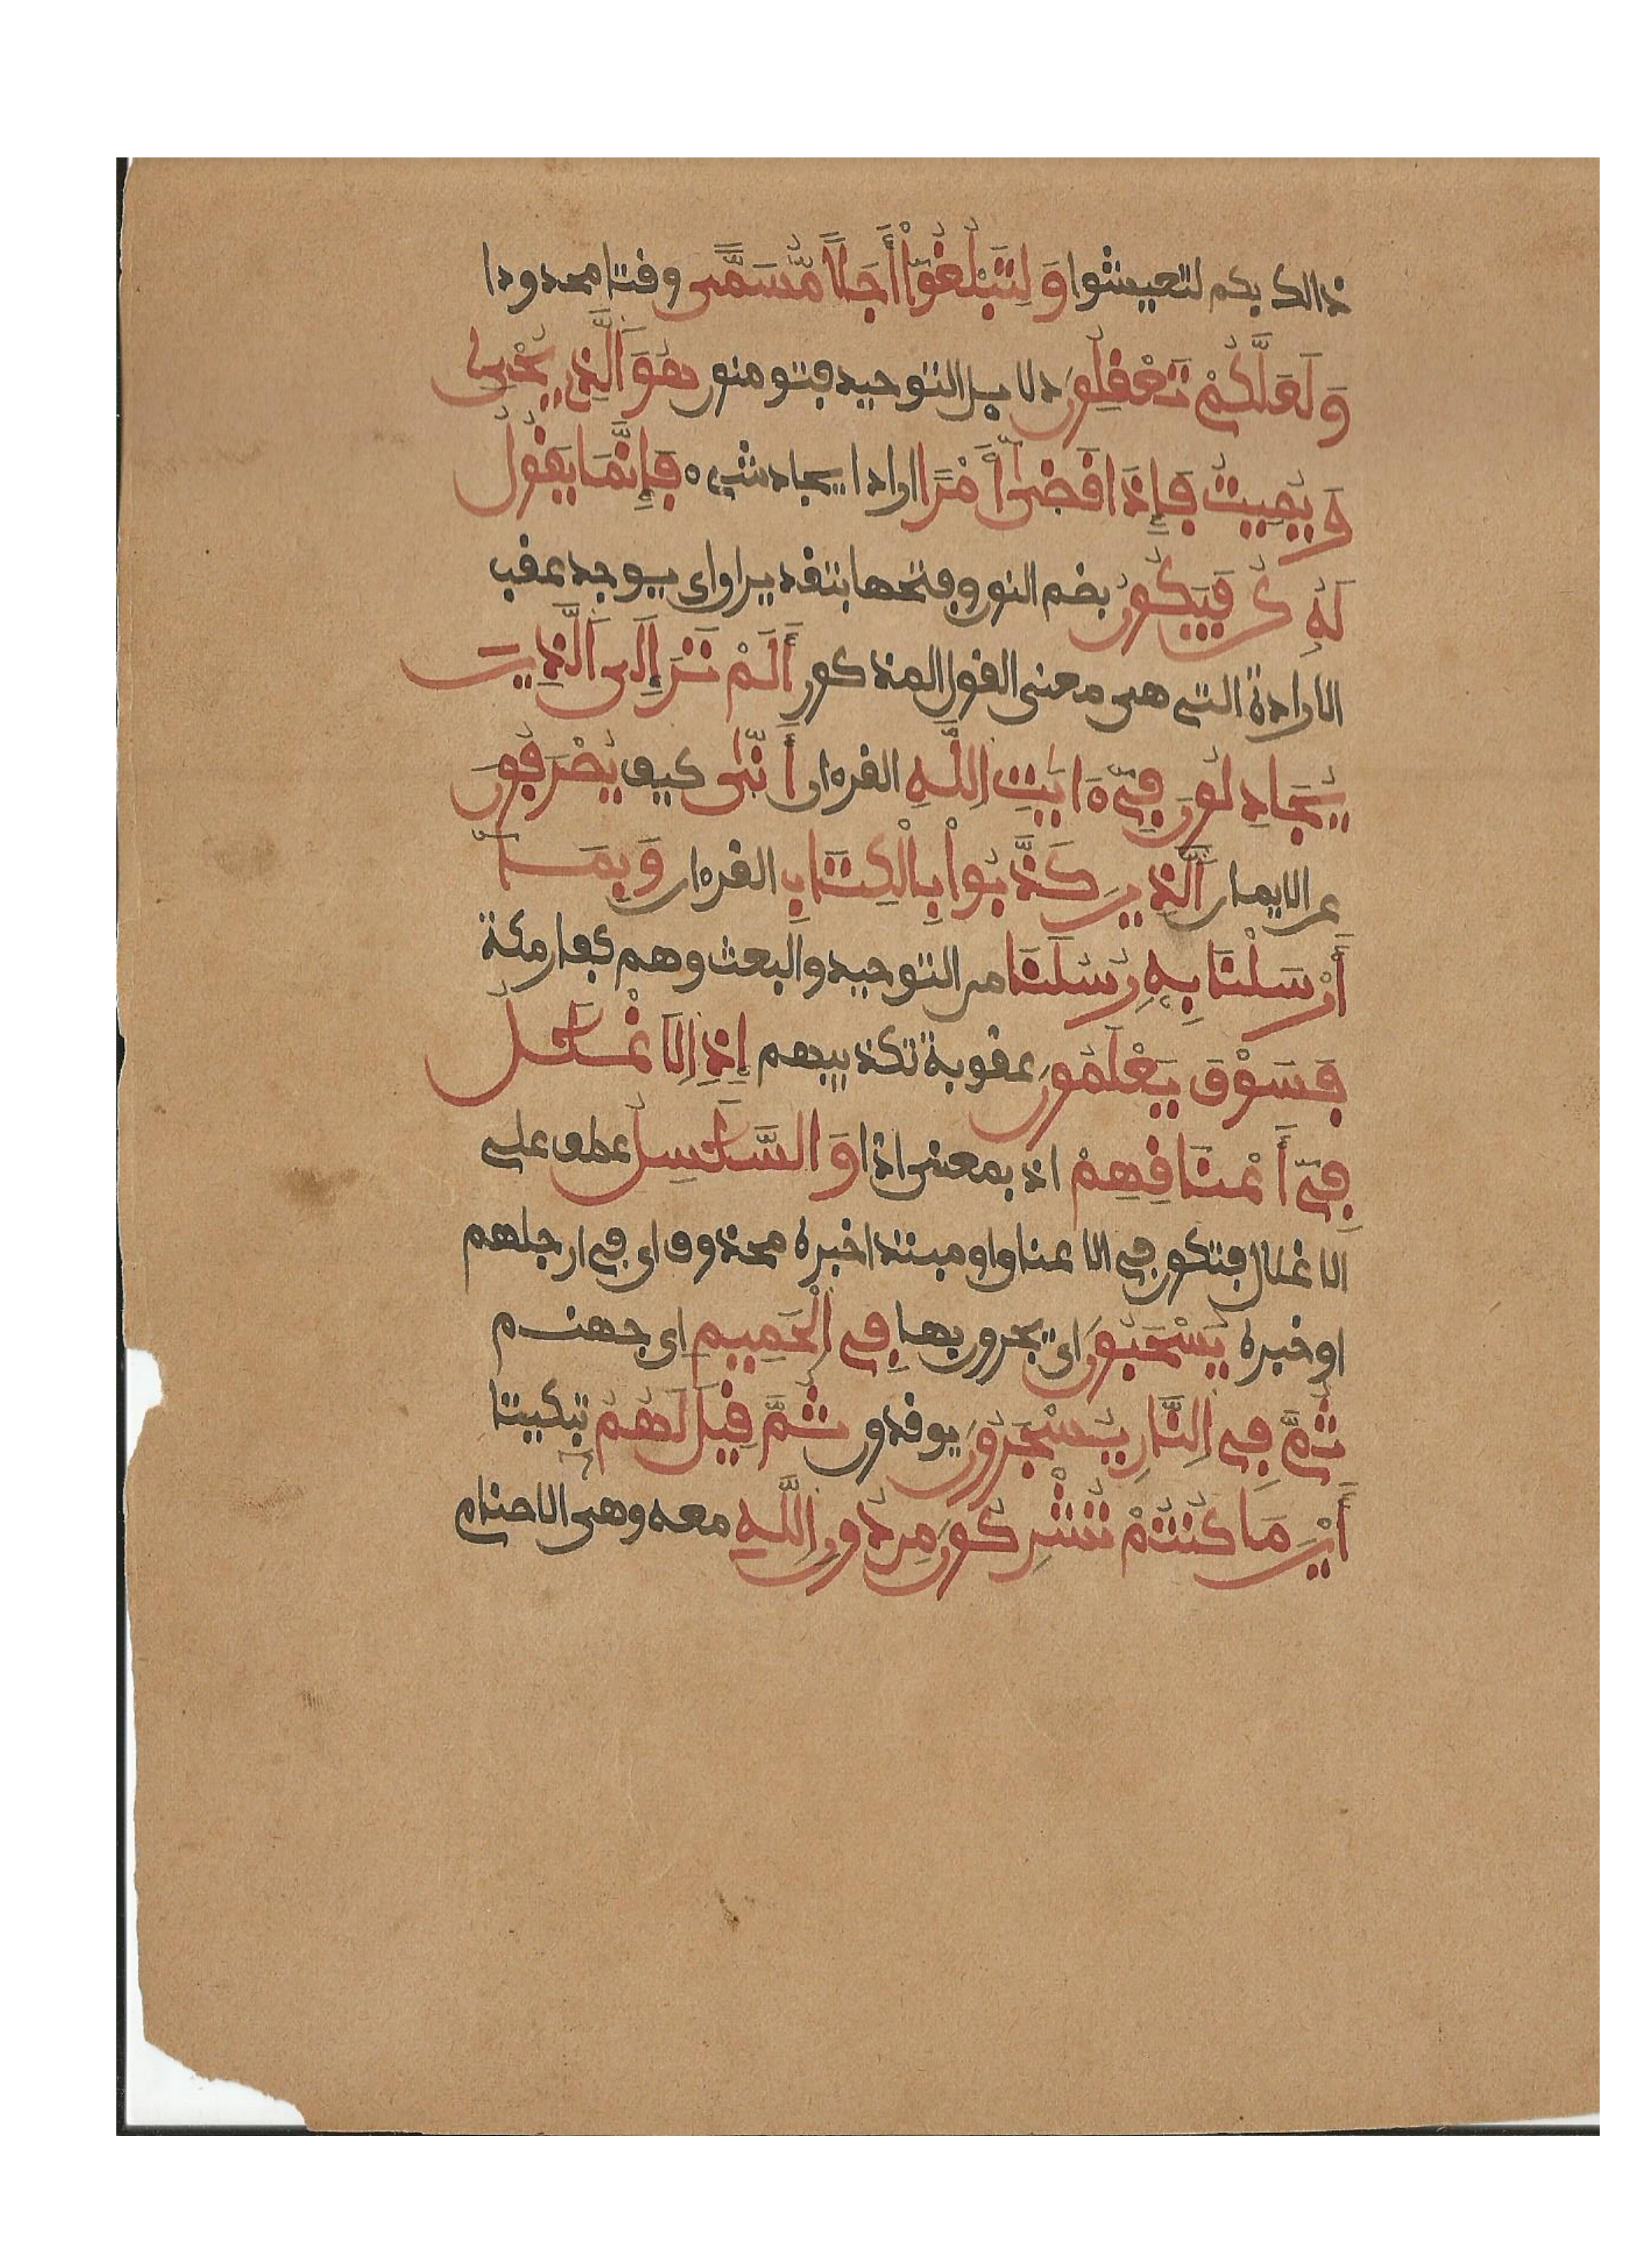 ذالك بكم لتعيشوا وَلِتَبْلُغُوٓاْ أَجَلاً مُّسَمًّى وقتا محدودا
وَلَعَلَّكُمْ تَعْقِلُونَ دلايل التوحيد فتومنون هُوَ اَلذِے يُحْيِۦ
وَيُمِيتُ فَإِذَا قَضَىٰٓ أَمْراً اراد ايجاد شےء فَإِنَّمَا يَقُولُ
لَهُۥ كُن فَيَكُونُ بضم النون وفتحها بتقدير ان اى يوجد عقب
الارادة التے هى معنى القول المذكور أَلَمْ تَرَ إِلَى اَلذِينَ
يُجَٰدِلُونَ فِےٓ ءَايَٰتِ اِللَّهِ القرءان أَنّىٰ كيف يُصْرَفُونَ
عن الايمان اَلذِينَ كَذَّبُواْ بِالْكِتَٰبِ القرءان وَبِمَآ
أَرْسَلْنَا بِهِۦ رُسُلَنَا من التوحيد والبعث وهم كفار مكة
فَسَوْفَ يَعْلَمُونَ عقوبة تكذيبهم إِذِ اِلَاغْلَٰلُ
فِےٓ أَعْنَٰقِهِمْ اذ بمعنى اذا وَالسَّلَٰسِلُ عطف علے
الاغلال فتكون فے الاعناق او مبتدا خبره محذوف اى فے ارجلهم
او خبره يُسْحَبُونَ اى يجرون بها فِے اِلْحَمِيمِ اى جهنم
ثُمَّ فِے اِلنَّارِ يُسْجَرُونَ يوقدون ثُمَّ قِيلَ لَهُمُۥٓ تبكيتا
أَيْنَ مَا كُنتُمْ تُشْرِكُونَ مِن دُونِ اِللَّهِ معه وهى الاصنام